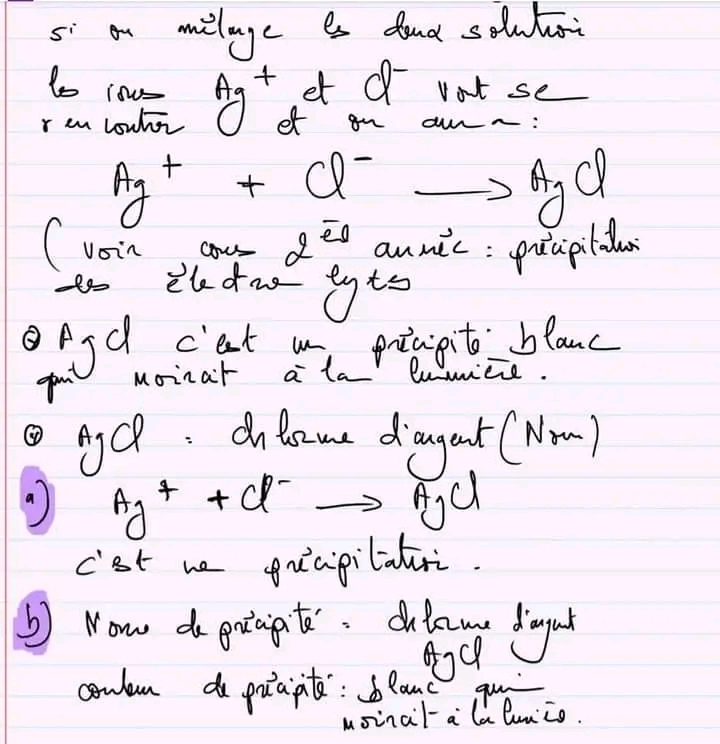 si on mélange les deux solution
les ions Ag⁺ et Cl⁻ vont se
rencontrer et on aura :
Ag⁺ + Cl⁻ → AgCl
( voir cours 2 année : précipitation
des électrolyts
AgCl c'est un précipité blanc
qui noircit à la lumière.
AgCl : chlorure d'argent (Nom)
a) Ag⁺ + Cl⁻ → AgCl
c'est une précipitation.
b) Nom de précipité : chlorure d'argent
AgCl
couleur de précipité : blanc qui
noircit à la lumière.